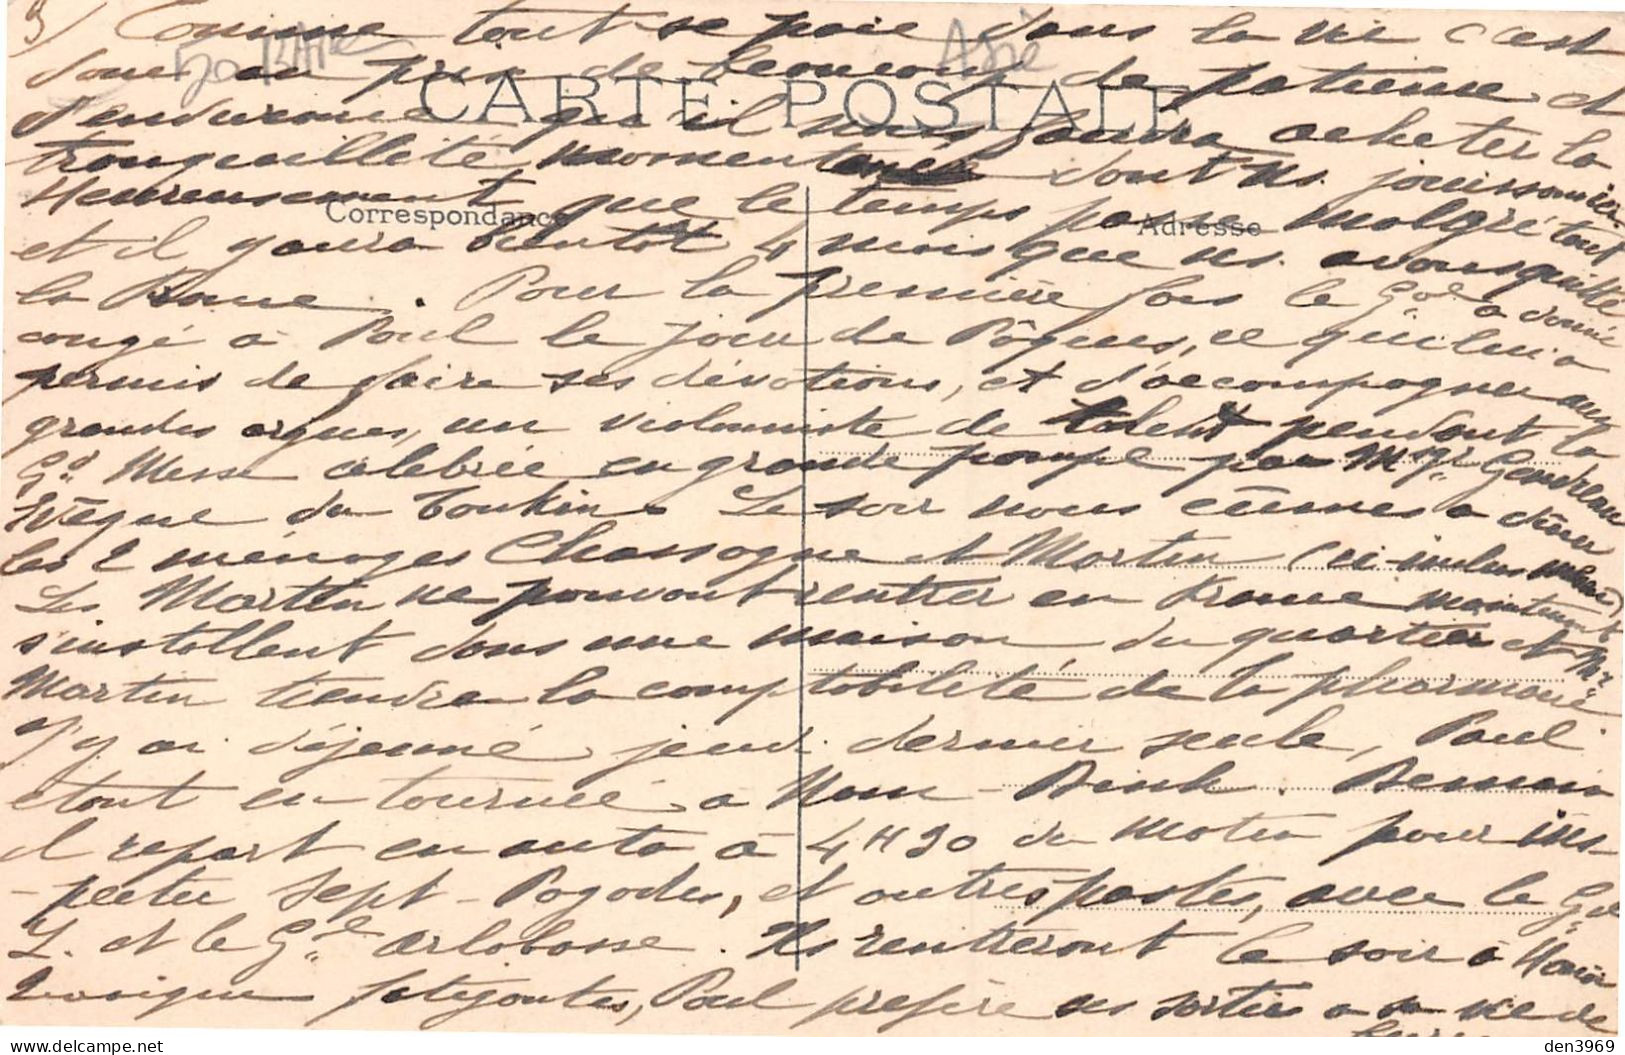 3) Comme tout se paie dans la vie c'est
donc au prix de beaucoup de patience et
CARTE POSTALE
d'endurance qu'il nous faudra acheter la
tranquillité momentanée dont ns. jouissons ici.
Heureusement que le temps passe malgré tout
Correspondance Adresse
et il y aura bientôt 4 mois que ns. avons quitté
la France. Pour la première fois le Gal a donné
congé à Paul le jour de Pâques, ce qui lui a
permis de faire ses dévotions, et d'accompagner aux
grandes orgues, un violoniste de talent pendant la
Gd Messe célébrée en grande pompe par Mgr Gendreau
Evêque du Tonkin. Le soir nous eûmes à dîner
les 2 ménages Chassagne et Martin
Les Martin ne pouvant rentrer en France maintenant
s'installent dans une maison du quartier et Mr
Martin tiendra la comptabilité de la pharmacie
J'y ai déjeuné jeudi dernier seule, Paul
étant en tournée à Nam-Dinh. Demain
il repart en auto à 4H30 du matin pour ins-
-pecter Sept-Pagodes, et autres postes, avec le Gal
L. et le Gal Arlabosse. Ils rentreront le soir à Hanoï
Quoique fatigantes, Paul préfère ces sorties à sa vie de
den3969